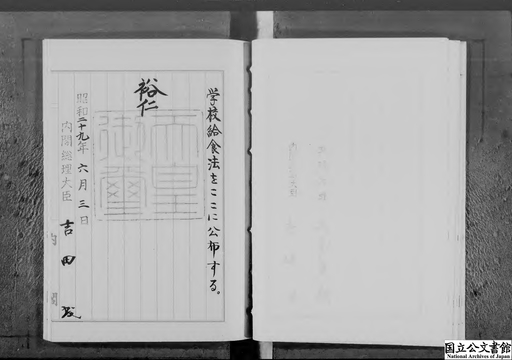 学校給食法をここに公布する。
裕仁
天皇御璽
昭和二十九年六月三日
内閣総理大臣 吉田茂
内閣
国立公文書館
National Archives of Japan